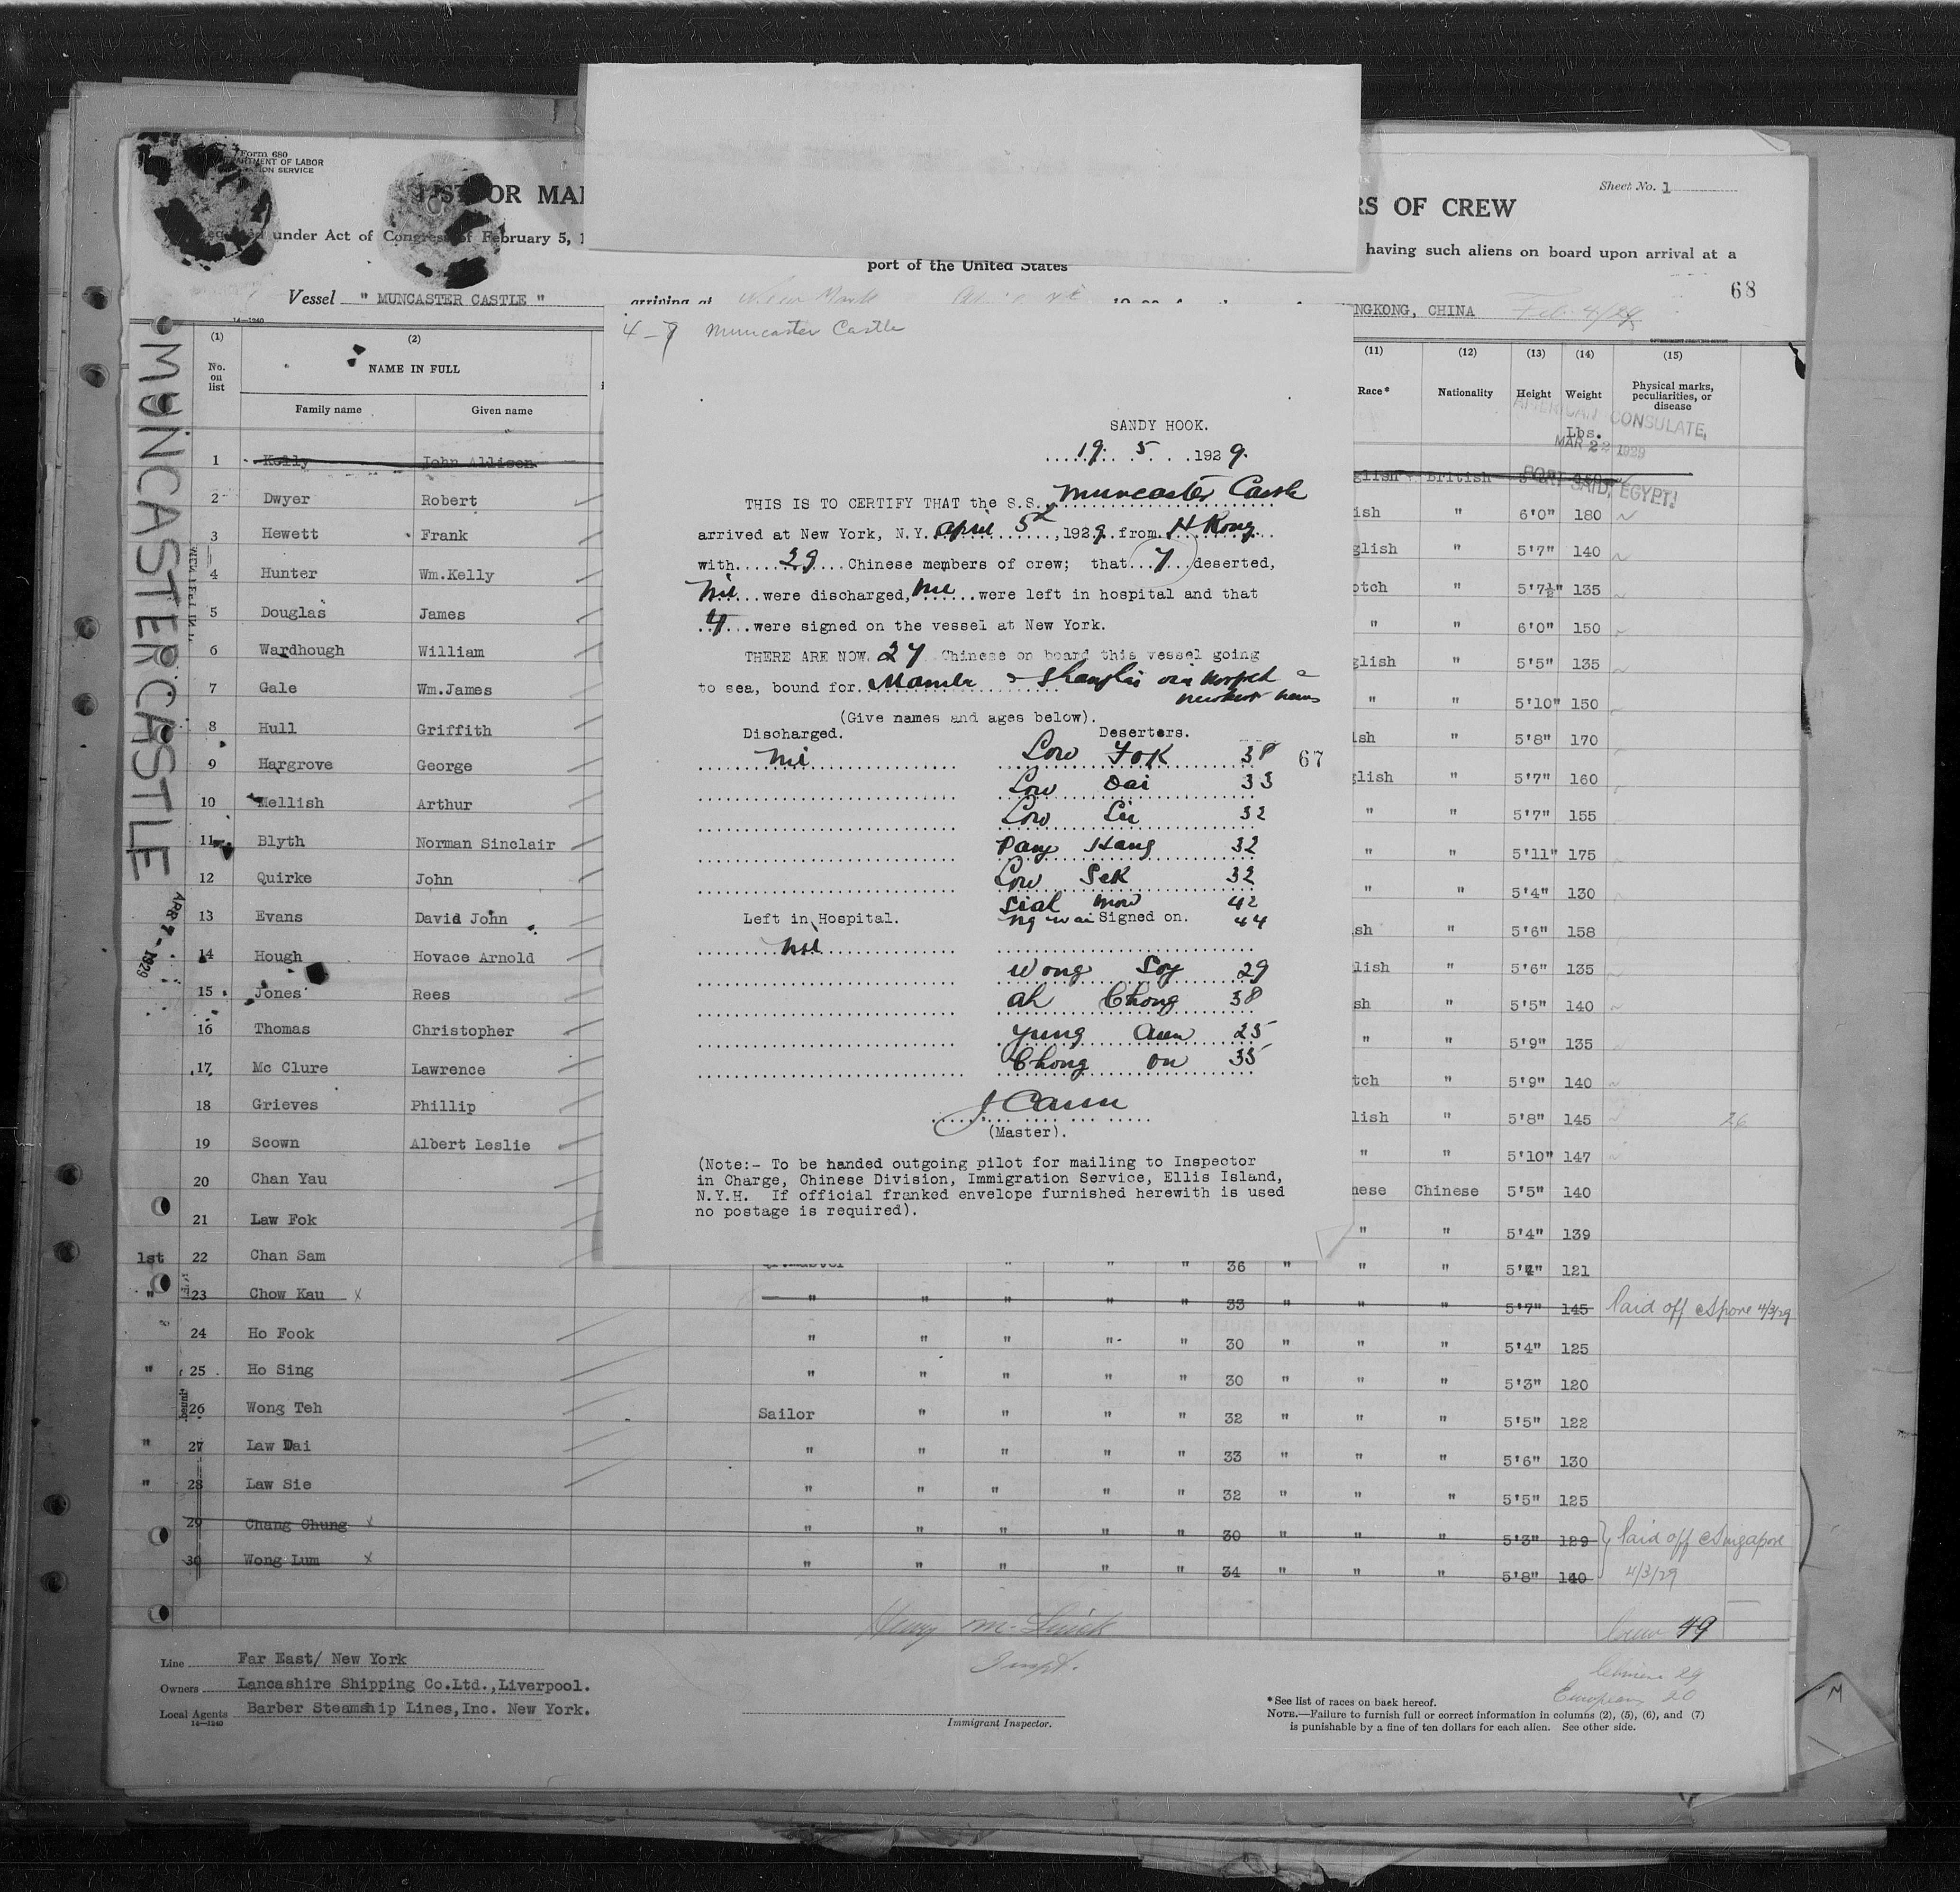 Form 680
OF LABOR
SERVICE
OR MA
RS OF CREW
Sheet No. 1
under Act of Congress of February 5, 1
having such aliens on board upon arrival at a
port of the United States
68
Vessel " MUNCASTER CASTLE "
NGKONG, CHINA Feb 4/29
14—1240
MUNCASTER CASTLE
APR 7 - 1929
(1) (2)
No. on list
NAME IN FULL
Family name Given name
(11) (12) (13) (14) (15)
Race* Nationality Height Weight Physical marks, peculiarities, or disease
Lbs.
AMERICAN CONSULATE,
MAR 22 1929
PORT SAID, EGYPT
1 Kelly John Allison glish British
2 Dwyer Robert ish " 6'0" 180
3 Hewett Frank glish " 5'7" 140
4 Hunter Wm.Kelly otch " 5'7½" 135
5 Douglas James " " 6'0" 150
6 Wardhough William glish " 5'5" 135
7 Gale Wm.James " " 5'10" 150
8 Hull Griffith ish " 5'8" 170
9 Hargrove George glish " 5'7" 160
10 Mellish Arthur " " 5'7" 155
11 Blyth Norman Sinclair " " 5'11" 175
12 Quirke John " " 5'4" 130
13 Evans David John sh " 5'6" 158
14 Hough Hovace Arnold lish " 5'6" 135
15 Jones Rees sh " 5'5" 140
16 Thomas Christopher " " 5'9" 135
17 Mc Clure Lawrence tch " 5'9" 140
18 Grieves Phillip lish " 5'8" 145
19 Scown Albert Leslie " " 5'10" 147
20 Chan Yau nese Chinese 5'5" 140
21 Law Fok " " 5'4" 139
1st 22 Chan Sam " " 36 " " " 5'4" 121
" 23 Chow Kau x " " " " " 33 " " " 5'7" 145 Paid off Spore 4/3/29
24 Ho Fook " " " " " 30 " " " 5'4" 125
" 25 Ho Sing " " " " " 30 " " " 5'3" 120
26 Wong Teh Sailor " " " " 32 " " " 5'5" 122
" 27 Law Dai " " " " " 33 " " " 5'6" 130
" 28 Law Sie " " " " " 32 " " " 5'5" 125
29 Chang Chung x " " " " " 30 " " " 5'3" 129 Paid off Singapore
30 Wong Lum x " " " " " 34 " " " 5'8" 140 4/3/29
4-7 Muncaster Castle
SANDY HOOK.
19. 5. 1929.
THIS IS TO CERTIFY THAT the S.S. Muncaster Castle
arrived at New York, N.Y. April 5th, 1929 from H Kong
with 29 Chinese members of crew; that 7 deserted,
Nil were discharged, Nil were left in hospital and that
4 were signed on the vessel at New York.
THERE ARE NOW 27 Chinese on board this vessel going
to sea, bound for Manila & Shanghai via Norfolk &
Newport News
(Give names and ages below).
Discharged. Deserters.
Nil Low Fok 38
67
Low Dai 33
Low Lii 32
Pang Kang 32
Low Sek 32
Sial Mow 42
Left in Hospital. Ng Wai Signed on. 44
Nil
Wong Soy 29
Ah Chong 38
Yung Aun 25
Chong On 35
(Master).
(Note:- To be handed outgoing pilot for mailing to Inspector
in Charge, Chinese Division, Immigration Service, Ellis Island,
N.Y.H. If official franked envelope furnished herewith is used
no postage is required).
Crew 49
Chinese 29
Europeans 20
Line Far East/ New York
Owners Lancashire Shipping Co.Ltd.,Liverpool.
Local Agents Barber Steamship Lines,Inc. New York.
14—1240
Immigrant Inspector.
*See list of races on back hereof.
NOTE.—Failure to furnish full or correct information in columns (2), (5), (6), and (7)
is punishable by a fine of ten dollars for each alien. See other side.
M